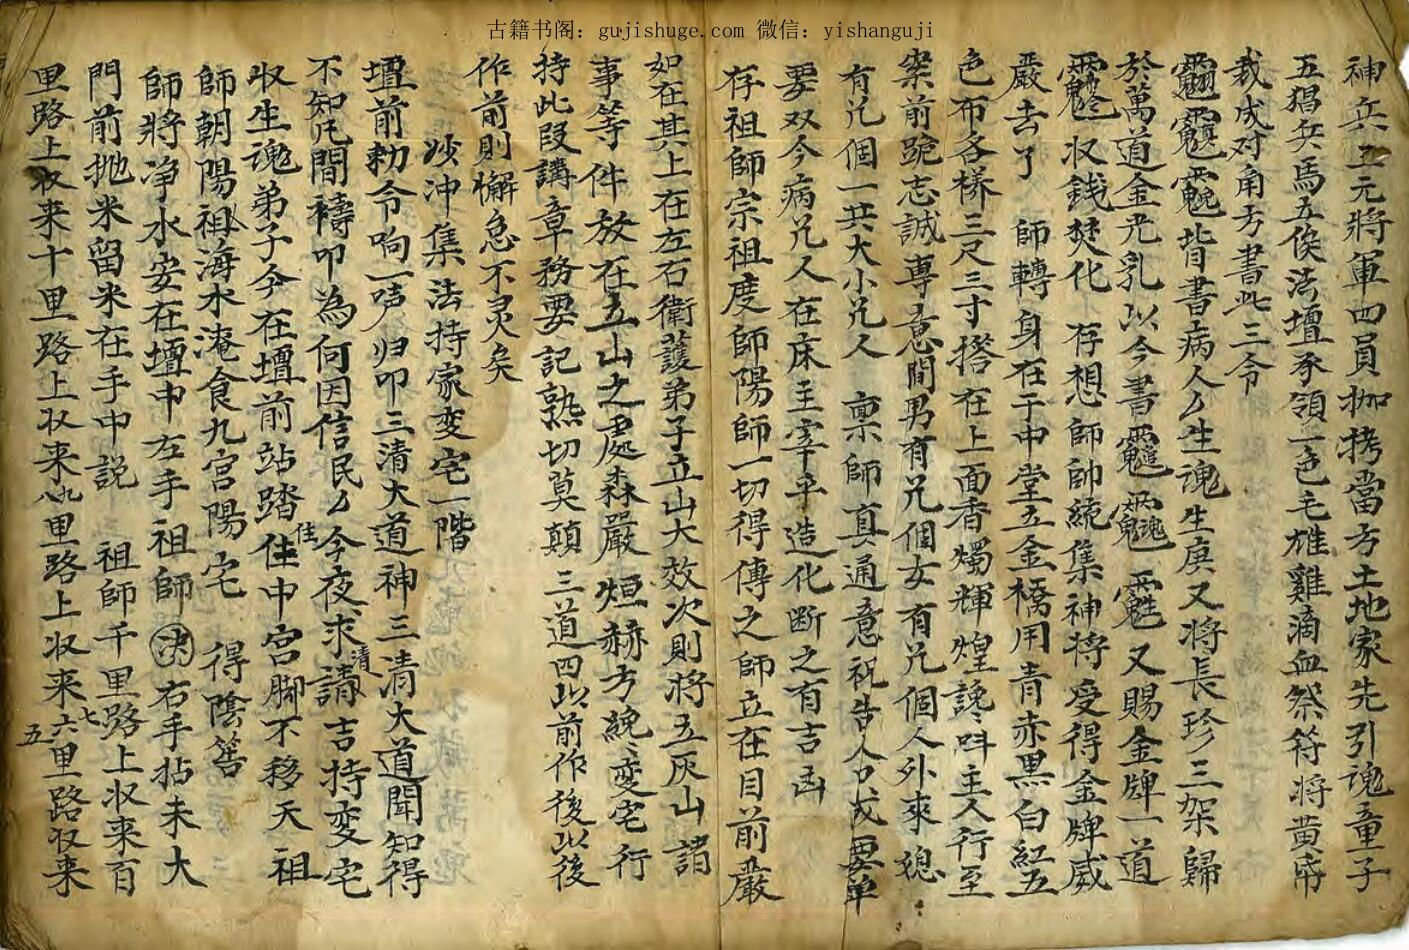 古籍书阁：gujishuge.com 微信：yishanguji
神兵三元將軍四員枷拷當方土地家先引魂童子
五猖兵馬五俟法壇承領一色毛雄雞滴血祭符將黄帋
裁成对角方書此三令
背書病人厶生魂生庚又將長珍三架歸
於萬道金光乳以今書又賜金牌一道
収錢焚化 存想師帥統集神將受得金牌威
嚴去了 師轉身在于中堂立金橋用青赤黑白紅五
色布各樣三尺三寸搭在上面香燭輝煌讒呌主人行至
案前跪志誠專意間男有兀個女有兀個人外來媳
有兀個一共大小兀人 禀師真通意祝告人口或要单
要双今病兀人在床主宰乎造化断之有吉凶
存祖師宗祖度師陽師一切得傳之師立在目前嚴
如在其上在左石衛護弟子立山大效次則將五灰山諸
事等件放在立山之處森嚴烜赫方纔变宅行
持此段講章務要記熟切莫顛三道四以前作後以後
作前則懈怠不灵矣
沙沖集法持家变宅一階
壇前勅令响一声归叩三清大道神三清大道聞知得
不知凡間禱叩為何因信民厶今夜求請清吉持变宅
収生魂弟子今在壇前站踏住中宫脚不移天祖
師朝陽祖海水淹食九宫陽宅 得陰筶
師將净水安在壇中左手祖師决右手拈未大
門前抛米留米在手中説 祖師千里路上収来百
里路上収来十里路上収来九八里路上収来七六里路収来
五